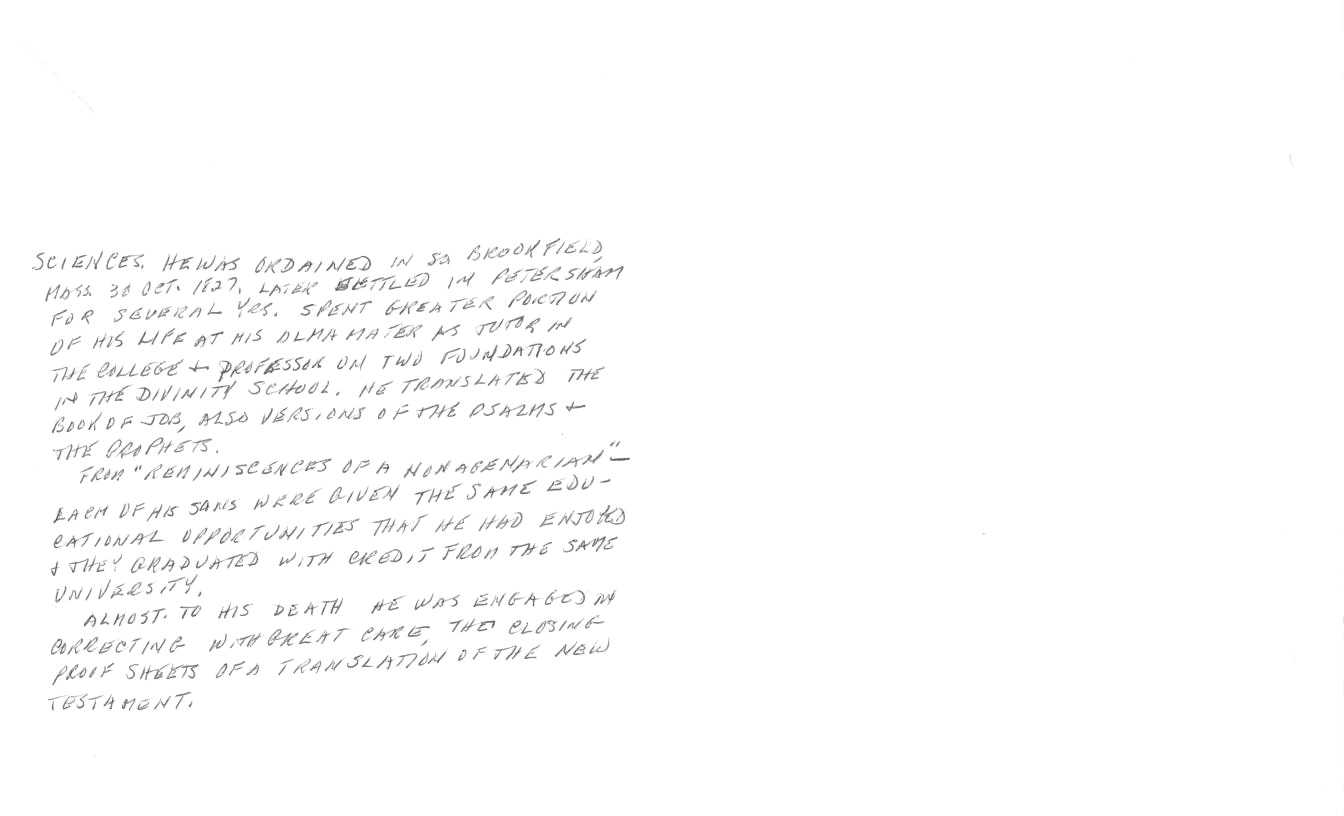 SCIENCES. HE WAS ORDAINED IN SO BROOKFIELD,
MASS. 30 OCT. 1827. LATER SETTLED IN PETERSHAM
FOR SEVERAL YRS. SPENT GREATER PORTION
OF HIS LIFE AT HIS ALMA MATER AS TUTOR IN
THE COLLEGE + PROFESSOR ON TWO FOUNDATIONS
IN THE DIVINITY SCHOOL. HE TRANSLATED THE
BOOK OF JOB, ALSO VERSIONS OF THE PSALMS +
THE PROPHETS.
FROM "REMINISCENCES OF A NONAGENARIAN" –
EACH OF HIS SONS WERE GIVEN THE SAME EDU-
CATIONAL OPPORTUNITIES THAT HE HAD ENJOYED
& THEY GRADUATED WITH CREDIT FROM THE SAME
UNIVERSITY.
ALMOST TO HIS DEATH HE WAS ENGAGED IN
CORRECTING WITH GREAT CARE, THE CLOSING
PROOF SHEETS OF A TRANSLATION OF THE NEW
TESTAMENT.